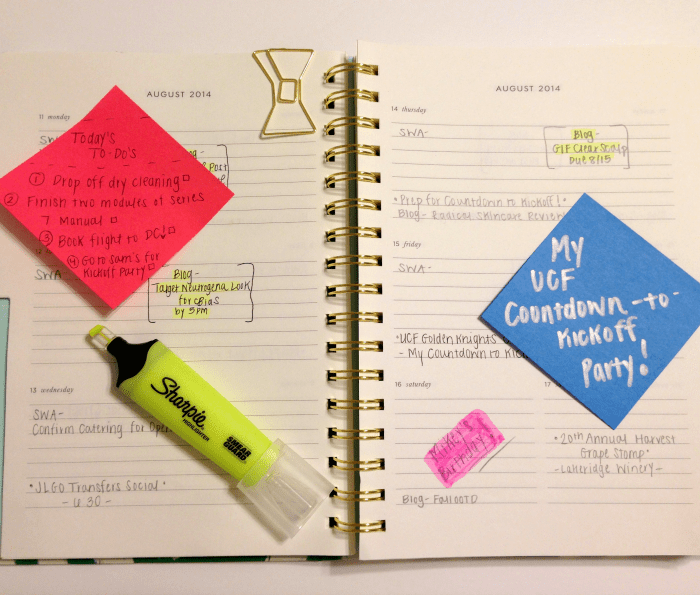 AUGUST 2014
11 monday
Today's
TO-DO's
① Drop off dry cleaning
② Finish two modules of Series
7 Manual
③ Book flight to DC!
④ Go to Sam's for
Kickoff Party
SWA-
Blog-
Target Neutrogena Look
for
by 5pm
13 wednesday
SWA-
Confirm Catering for
• JLGO Transfers Social •
- u 30 -
Sharpie
HIGHLIGHTER
SMEAR
GUARD
AUGUST 2014
14 thursday
SWA-
Blog-
GIF Clear Scalp
Due 8/15
• Prep for Countdown to Kickoff! •
Blog- Radical Skincare Review
15 friday
SWA-
My
UCF
Countdown-to-
Kickoff
Party!
• UCF Golden Knights
- My Countdown to
16 saturday
17
Mike
Birthday
• 20th Annual Harvest
Grape Stomp •
- Lakeridge Winery -
Blog- Fall OOTD